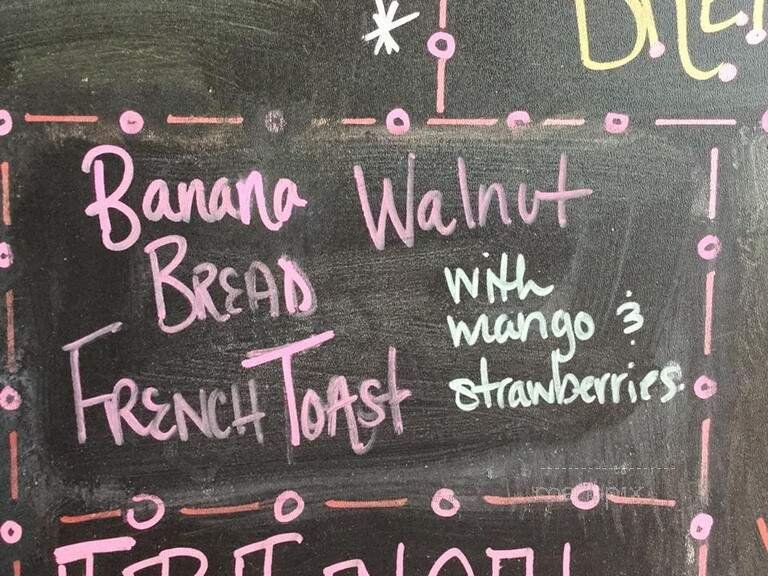 *
Banana Walnut
BREAD
FRENCH TOAST
with
mango &
strawberries